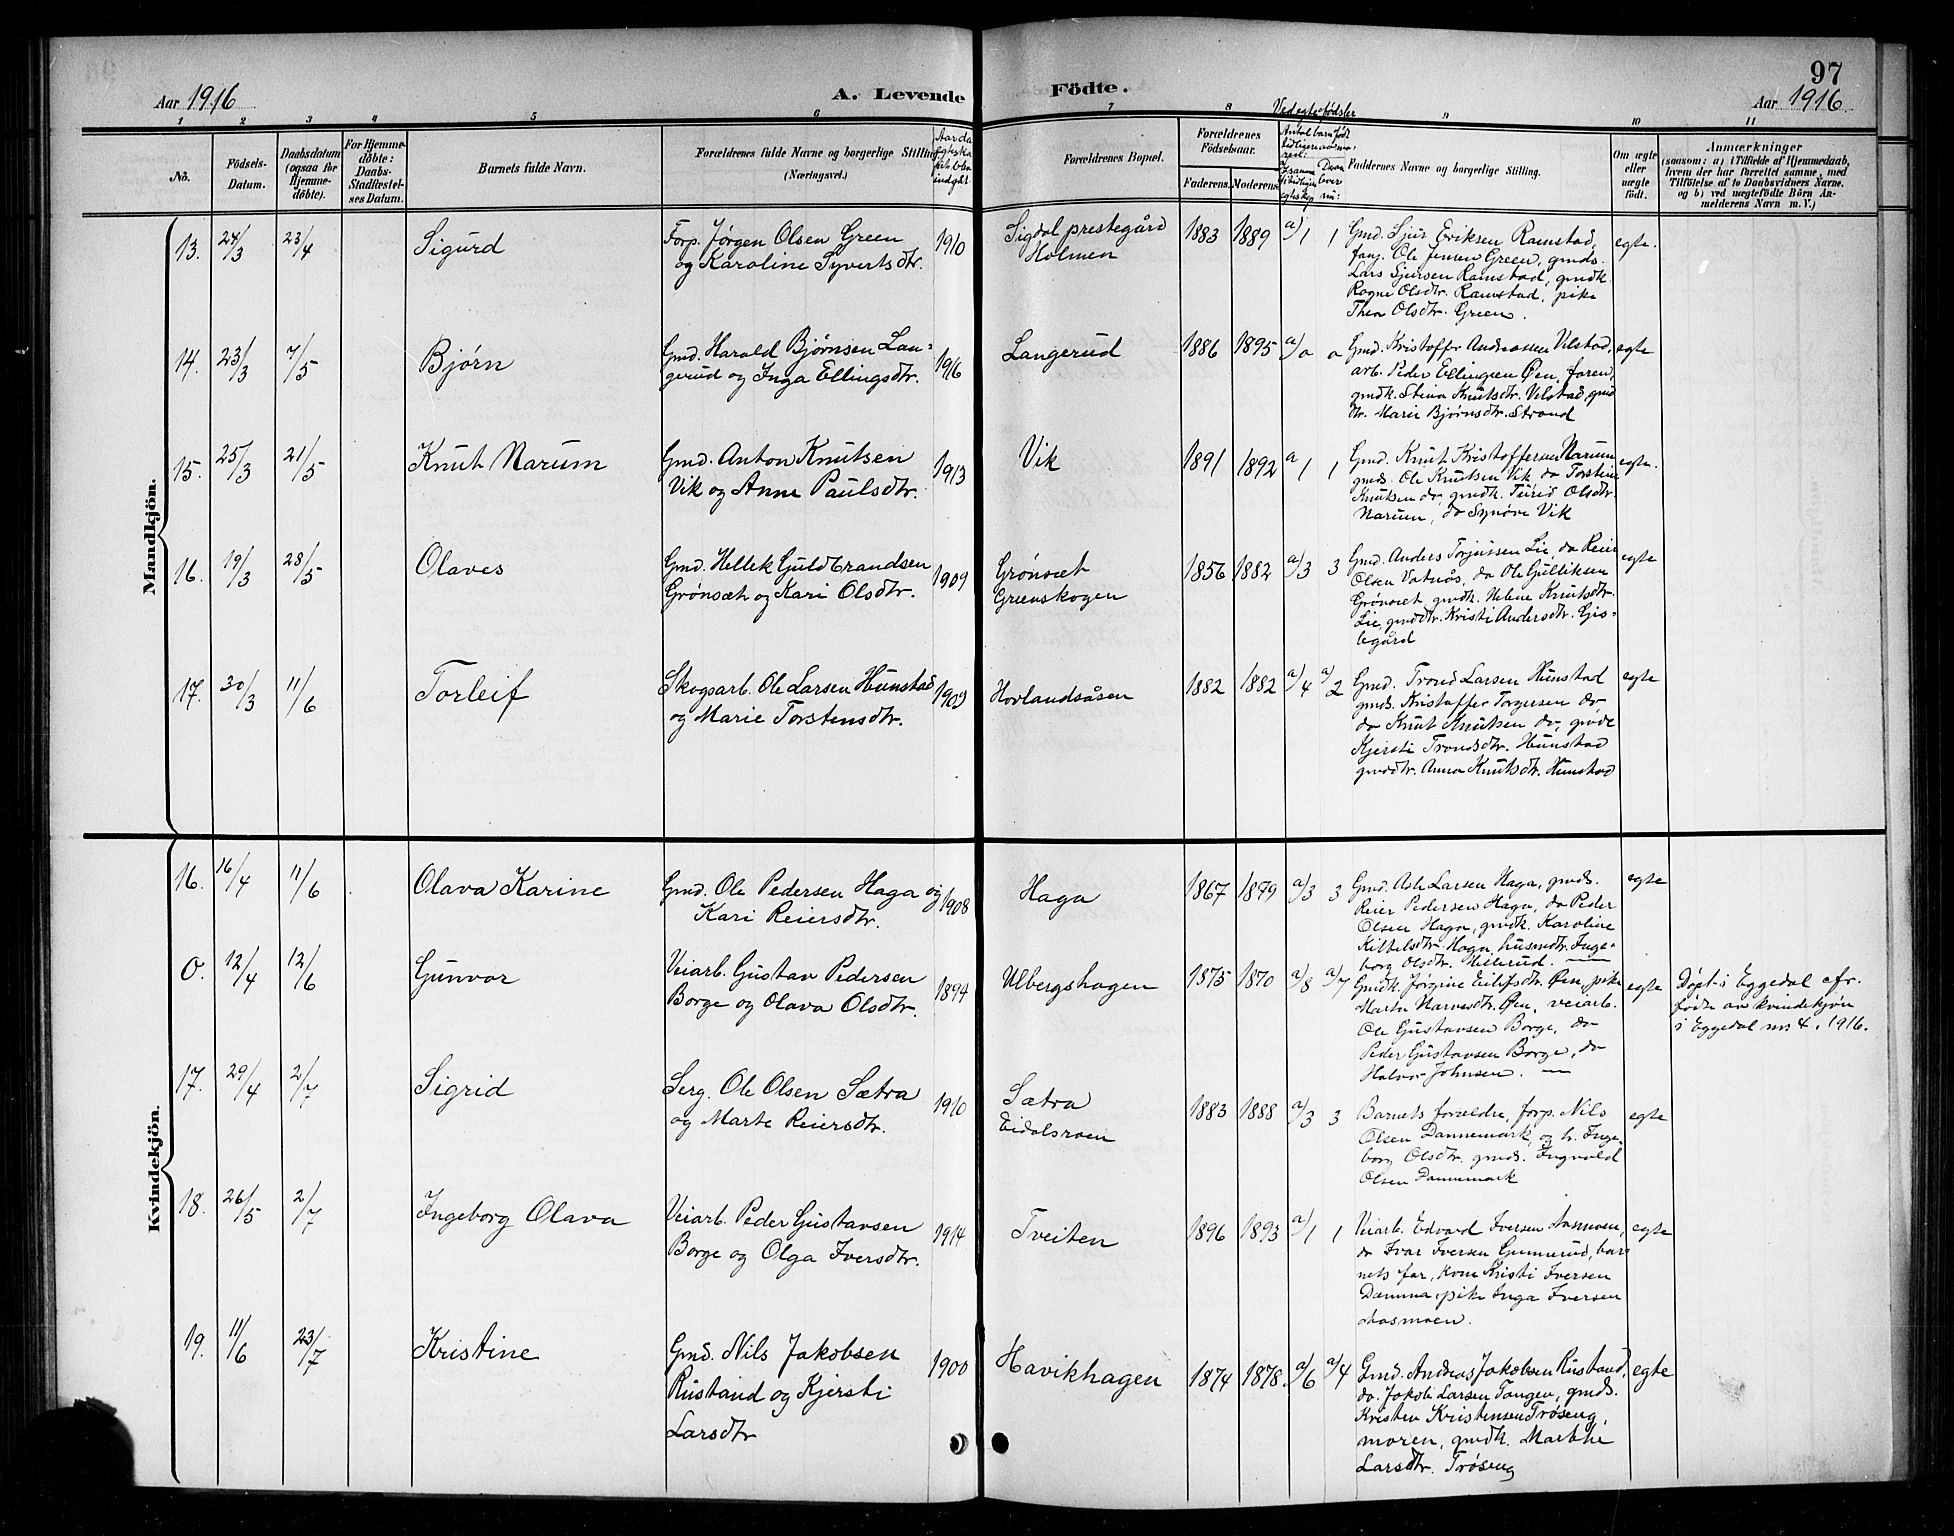 97
Aar 1916
A. Levende Födte.
Aar 1916
1 2 3 4 5 6 7 8 9 10 11
No.
Födsels-Datum.
Daabsdatum (ogsaa for Hjemme-döbte).
For Hjemme-döbte: Daabs-Stadfæstelses Datum.
Barnets fulde Navn.
Forældrenes fulde Navne og borgerlige Stilling
(Næringsvei.)
Forældrenes Bopæl.
Forældrenes Födselsaar.
Faderens. Moderens.
Ved egte fødsler
Faddernes Navne og borgerlige Stilling.
Om ægte eller uægte födt.
Anmærkninger
(saasom: a) i Tilfælde af Hjemmedaab,
hvem der har forrettet samme, med
Tilföielse af to Daabsvidners Navne.
og b) ved uægtefödte Börn An-
melderens Navn m. V.)
Mandkjön.
13. 24/3 23/4 Sigurd
Forp. Jørgen Olsen Green
og Karoline Syvertsdtr.
1910
Sigdal prestegård
Holmen
1883 1889 a/1 1
Gmd. Sjur Eriksen Ramstad,
fang. Ole Jensen Green, gmds.
Lars Sjursen Ramstad, gmdk.
Ragne Olsdtr. Ramstad, pike
Thea Olsdtr. Green.
egte.
14. 23/3 7/5 Bjørn
Gmd. Harald Bjørnsen Lan-
gerud og Inga Ellingsdtr.
1916
Langerud
1886 1895 a/0 0
Gmd. Kristoffer Andreassen Velstad,
arb. Peder Ellingsen Øen, faren,
gmdk. Stina Knutsdtr. Velstad, gmd
dtr. Marie Bjørnsdtr. Strand
egte
15. 25/3 21/5 Knut Narum
Gmd. Anton Knutsen
Vik og Anne Paulsdtr.
1913
Vik
1891 1892 a/1 1
Gmd. Knut Kristoffersen Narum
gmds. Ole Knutsen Vik, do Torstein
Knutsen do, gmdk. Turid Olsdtr.
Narum, do Synøve Vik
egte.
16. 19/3 28/5 Olaves
Gmd. Hellek Guldbrandsen
Grønsæt og Kari Olsdtr.
1909
Grønsæt
Greenskogen
1856 1882 a/3 3
Gmd. Anders Torjussen Lie, do Reier
Olsen Vatnås, do Ole Gulliksen
Grønsæt, gmdk. Helene Knutsdtr.
Lie, gmddtr. Kristi Andersdtr. Gis-
legård
egte
17. 30/3 11/6 Torleif
Skogsarb. Ole Larsen Hunstad
og Marie Torstensdtr.
1909
Hovlandsåsen
1882 1882 a/4 a/2
Gmd. Trond Larsen Hunstad
gmds. Kristoffer Torgersen do,
do Knut Knutsen do, gmdk
Kjersti Trondsdtr. Hunstad
gmddtr. Anna Knutsdtr. Hunstad
egte
Kvindekjön.
16. 16/4 11/6 Olava Karine
Gmd. Ole Pedersen Haga og
Kari Reiersdtr.
1908
Haga
1867 1879 a/3 3
Gmd. Ask Larsen Haga, gmds.
Reier Pedersen Haga, do Peder
Olsen Haga, gmdk. Karoline
Kittelsdtr. Haga, husmdtr. Inge-
borg Olsdtr. Hillerud.
egte
0. 12/4 12/6 Gunvor
Veiarb. Gustav Pedersen
Borge og Olava Olsdtr.
1894
Ulbergshagen
1875 1870 a/8 a/7
Gmdk. Jørgine Eilifsdtr. Øen, pike
Marta Narvesdtr. Øen, veiarb.
Ole Gustavsen Borge, do
Peder Gustavsen Borge, do
Halvor Johnsen.
egte
Døpt i Eggedal cfr.
fødte av kvindekjøn
i Eggedal nr. 4, 1916.
17. 29/4 2/7 Sigrid
Serg. Ole Olsen Sætra
og Marte Reiersdtr.
1910
Sætra
Eidalsroen
1883 1888 a/3 3
Barnets forældre, forp. Nils
Olsen Dannemark, og h. Inge-
borg Olsdtr. gmds. Ingvald
Olsen Dannemark
egte
18. 26/5 2/7 Ingeborg Olava
Veiarb. Peder Gustavsen
Borge og Olga Iversdtr.
1914
Tveiten
1896 1893 a/1 1
Veiarb. Edvard Iversen Aasmoen,
do Ivar Iversen Gunnerud, bar
nets far, kone Kristi Iversen
Damma, pike Inga Iversen
Aasmoen.
egte
19. 11/6 23/7 Kristine
Gmd. Nils Jakobsen
Rustand og Kjersti
Larsdtr
1900
Havikhagen
1874 1878. a/6 a/4
Gmd. Andreas Jakobsen Rustand,
do. Jakob Larsen Tangen, gmds.
Kristen Kristensen Trøseng,
moren, gmdk. Marthe
Larsdtr. Trøseng
egte